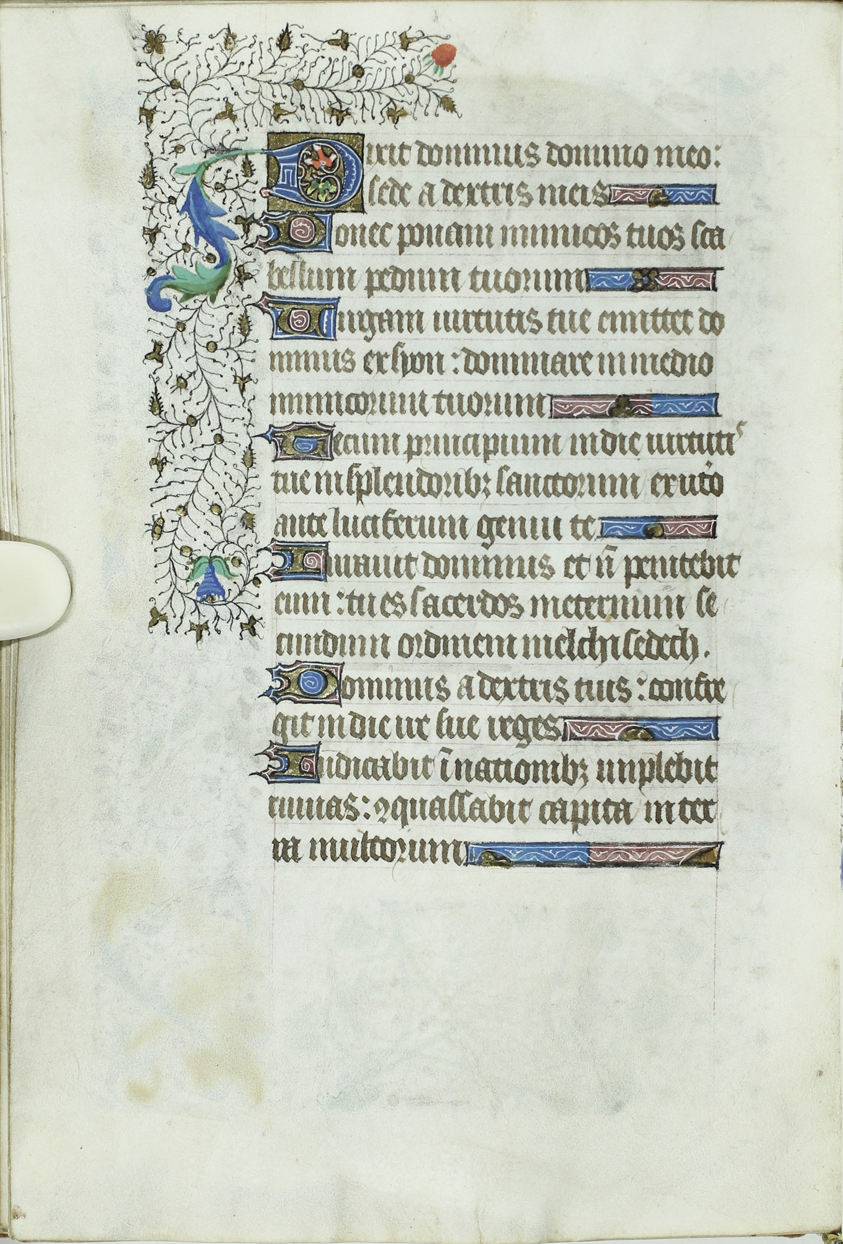 Dixit dominus domino meo:
sede a dextris meis
Donec ponam inimicos tuos sca
bellum pedum tuorum
Uirgam uirtutis tue emittet do
minus ex syon : dominare in medio
inimicorum tuorum
Tecum principium in die uirtutis
tue in splendoribꝫ sanctorum ex utō
ante luciferum genui te
Iurauit dominus et n̄ penitebit
eum : tu es sacerdos in eternum se
cundum ordinem melchisedech .
Dominus a dextris tuis : confre
git in die ire sue reges
Iudicabit ī nationibꝫ implebit
ruinas : ꝯquassabit capita in ter
ra multorum